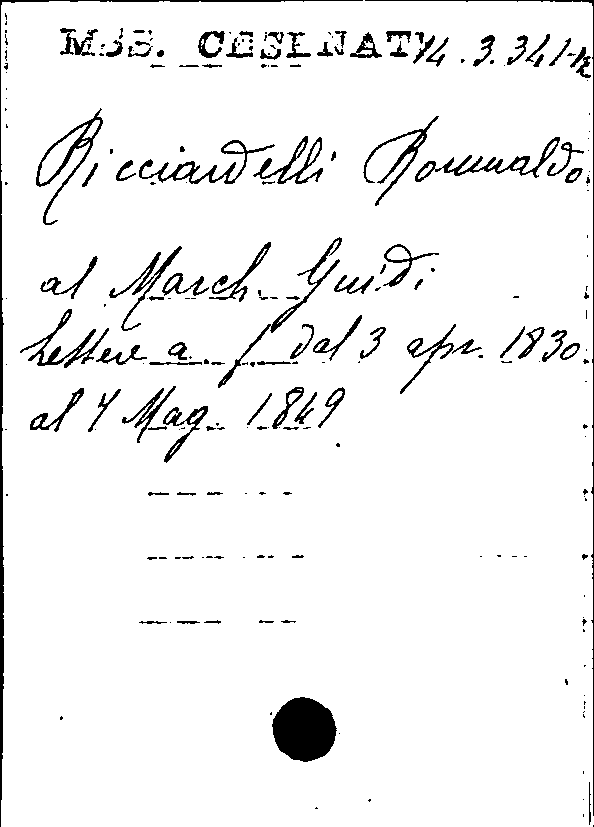 MSS. CESENATI 14.3.341-12
Ricciardelli Romualdo
al March. Guidi
Lettere a. f. dal 3 apr. 1830
al 7 Mag. 1849